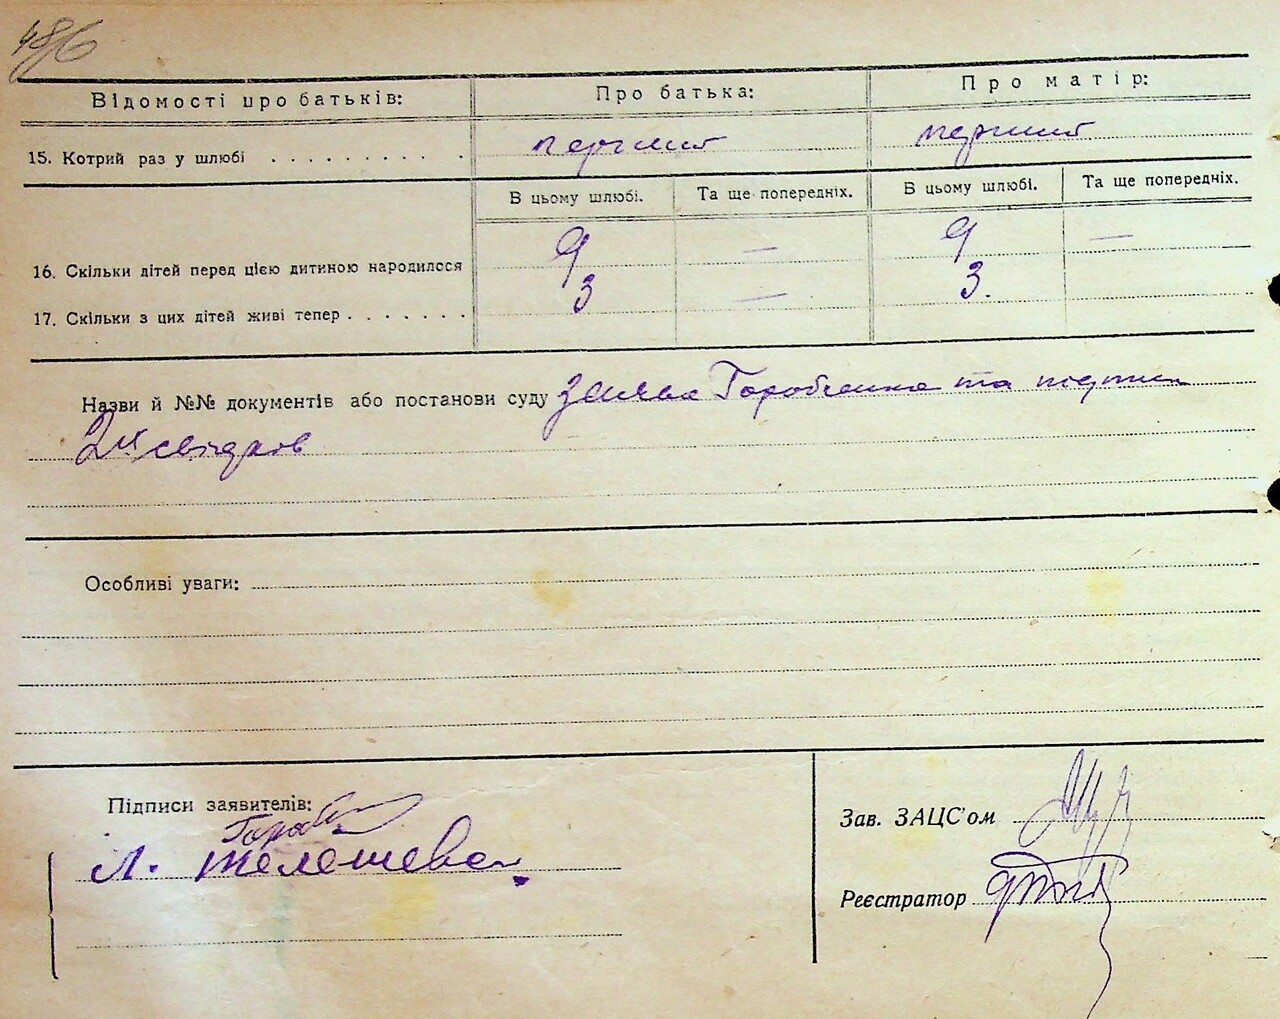 486
Відомості про батьків: Про батька: Про матір:
15. Котрий раз у шлюбі . . . . . . . . . . перший перший
В цьому шлюбі. Та ще попередніх. В цьому шлюбі. Та ще попередніх.
16. Скільки дітей перед цією дитиною народилося 9 — 9 —
17. Скільки з цих дітей живі тепер . . . . . . . 3 — 3.
Назви й №№ документів або постанови суду заява Горобченка та підписи
2х свідков
Особливі уваги:
Підписи заявителів:
Л. Телешева
Зав. ЗАЦС'ом
Реєстратор